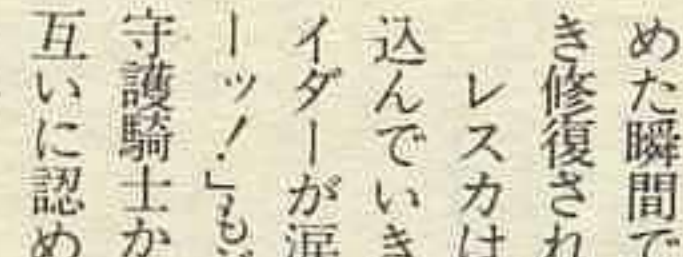 めた瞬間で
き修復され
レスカは
込んでいき
イダーが涙
ーッ！」も
守護騎士か
互いに認め